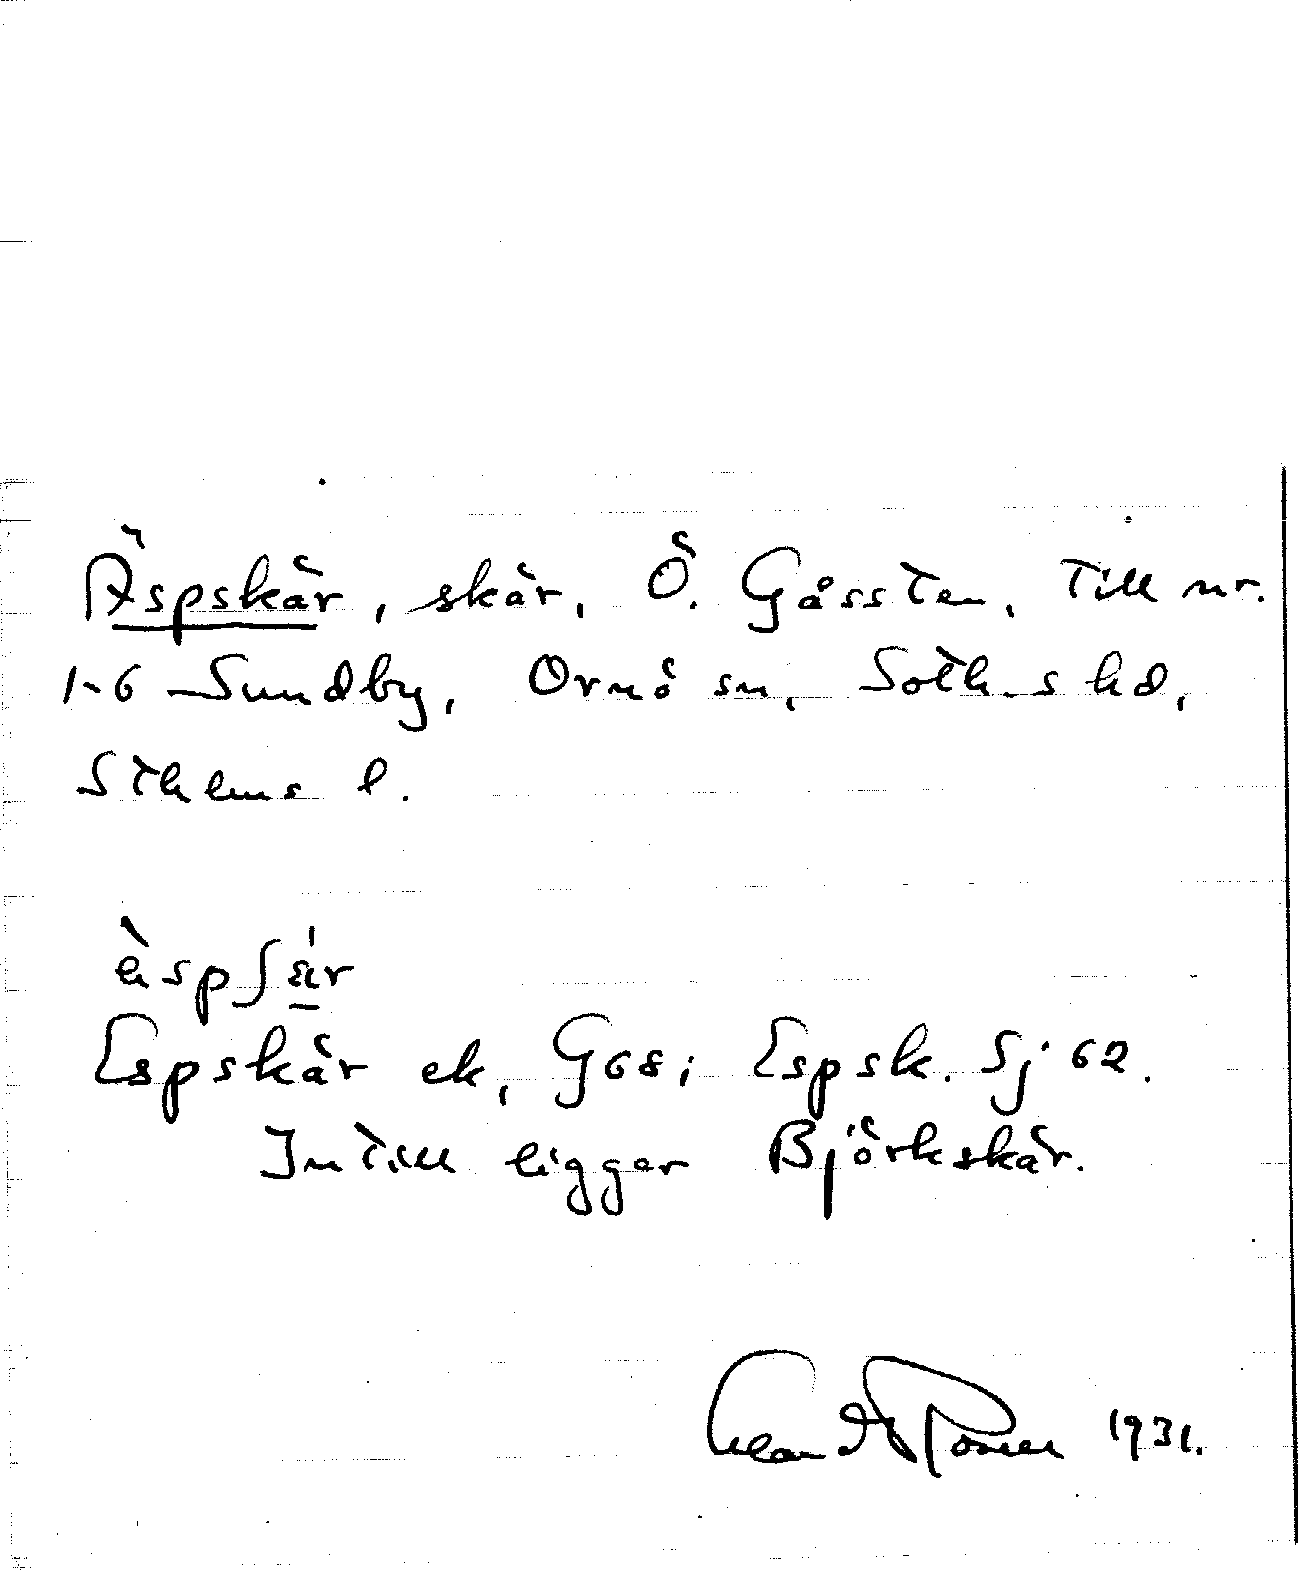 Äspskär, skär, Ö. Gåssten, Till nr.
1-6 Sundby, Ornö sn, Sotk-s hd,
Sthlms l.
èspʃä́r
Espskär ek, G68; Espsk. Sj 62.
Intill ligger Björkskär.
1931.